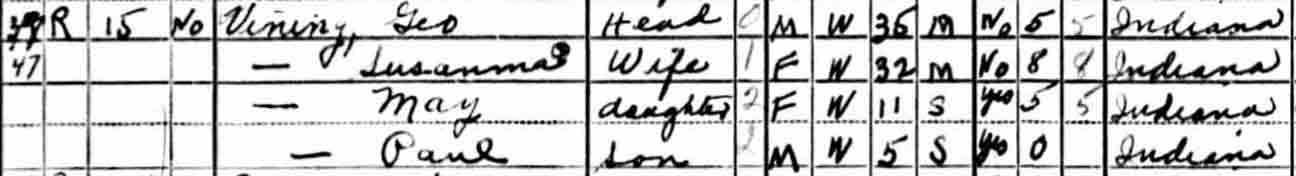 R 15 No Vining, Geo Head 0 M W 36 M No 5 5 Indiana
47 — Susanna Wife 1 F W 32 M No 8 8 Indiana
— May daughter 2 F W 11 S yes 5 5 Indiana
— Paul son 2 M W 5 S yes 0 Indiana